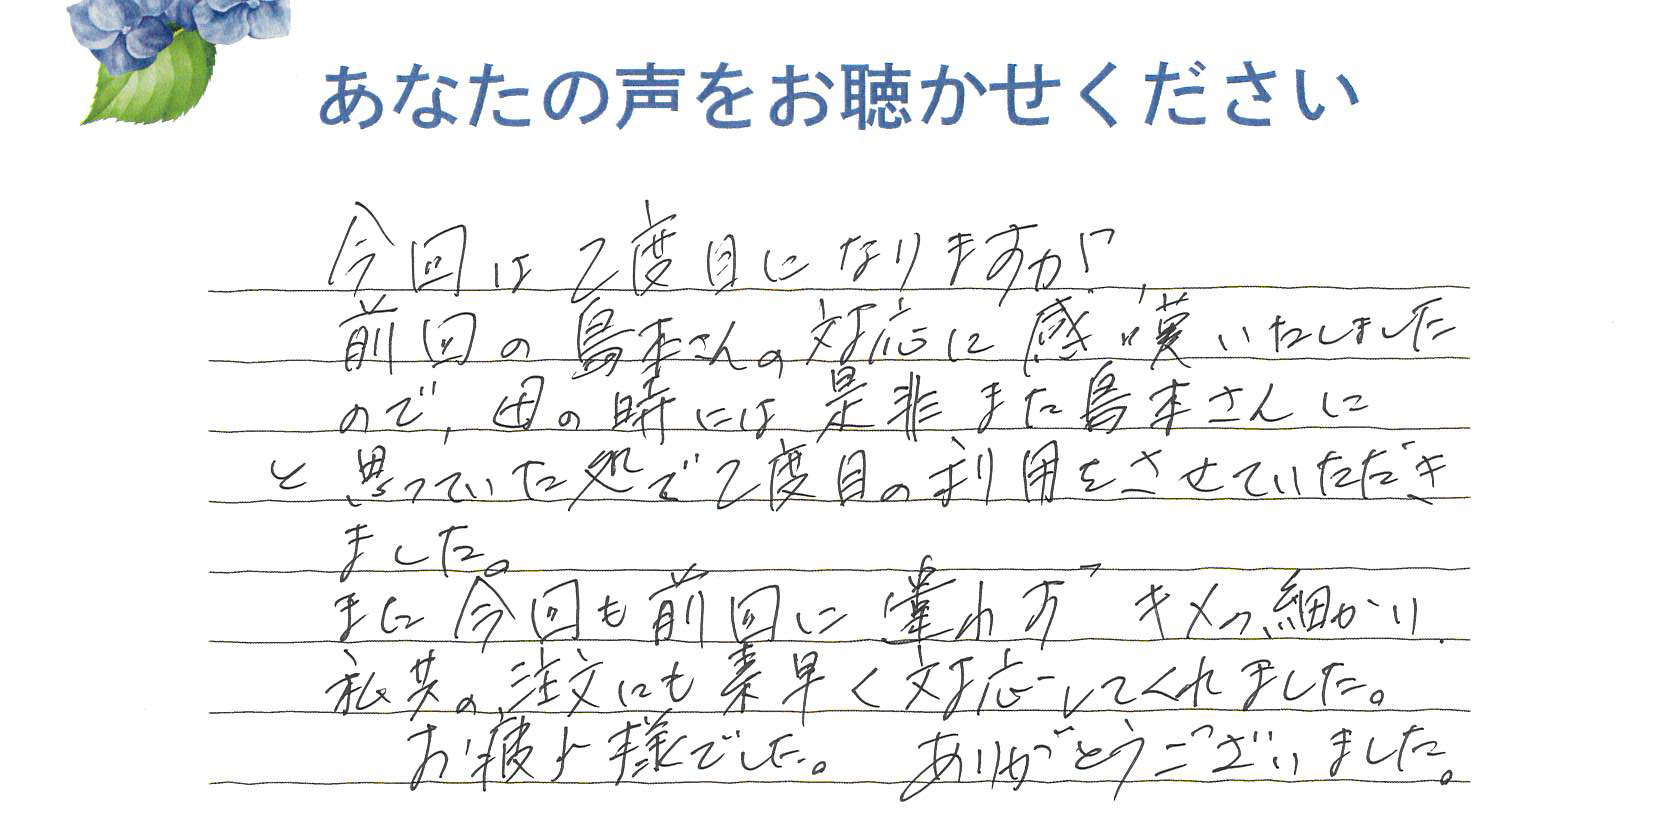 あなたの声をお聴かせください
今回は2度目になりますが
前回の島本さんの対応に感嘆いたしました
ので、母の時には是非また島本さんに
と思っていた処で2度目の利用をさせていただき
ました。
また今回も前回に違わず キメの細かい
私共の注文にも素早く対応してくれました。
お疲れ様でした。 ありがとうございました。